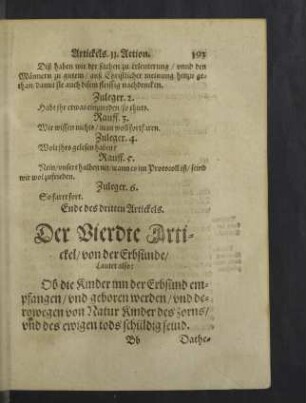 Artickels. 11. Action. 393
Diß haben wir der sachen zu erleuterung / vnnd den
Männern zu gutem / auß Christlicher meinung hinzu ge-
than damit sie auch disem fleissig nachdencken.
Zuleger. 2.
Habt ihr etwas einzureden so thuts.
Rauff. 3.
Wir wissen nichts / man woll fortfaren.
Zuleger. 4.
Wolt ihrs gelesen haben?
Rauff. 5.
Nein / vnsert halben nit / wann es im Protocoll ist / seind
wir wol zufrieden.
Zuleger. 6.
So farrt fort.
Ende des dritten Artickels.
Der Vierdte Arti-
ckel / von der Erbsünde /
Lautet also:
Ob die Kinder inn der Erbsünd em-
pfangen / vnd geboren werden / vnd de-
rowegen von Natur Kinder des zorns /
vnd des ewigen tods schuldig seind.
Bb Dathe-